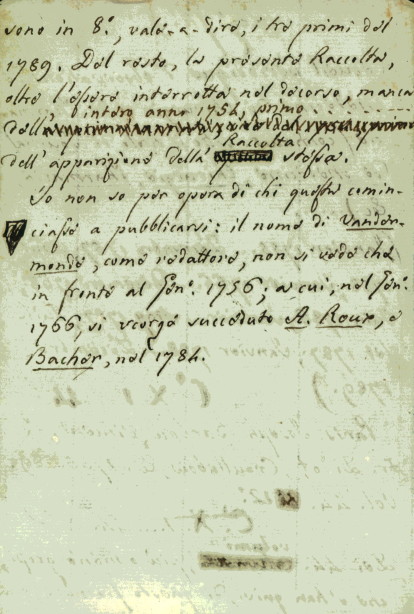 sono in 8.°, vale-a-dire, i tre primi del
1789. Del resto, la presente Raccolta,
oltre l'essere interrotta nel decorso, manca
intero anno 1754, primo
dell'
Raccolta
dell'apparizione della stessa.
Io non so per opera di chi questa comin-
ciasse a pubblicarsi: il nome di Vander-
monde, come redattore, non si vede che
in fronte al Gen.° 1756; a cui, nel Gen.°
1766, si scorge succeduto A. Roux, e
Bacher, nel 1784.